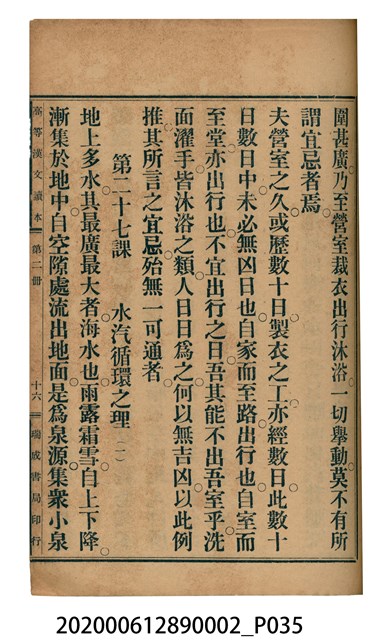 圍甚廣乃至營室裁衣出行沐浴一切舉動莫不有所
謂宜忌者焉
夫營室之久或歷數十日製衣之工亦經數日此數十
日數日中未必無凶日也自家而至路出行也自室而
至堂亦出行也不宜出行之日吾其能不出吾室乎洗
面濯手皆沐浴之類人日日為之何以無吉凶以此例
推其所言之宜忌殆無一可通者
第二十七課　水汽循環之理（一）
地上多水其最廣最大者海水也雨露霜雪自上下降
漸集於地中自空隙處流出地面是為泉源集衆小泉
高等漢文讀本　第二冊　十六　瑞成書局印行
202000612890002_P035